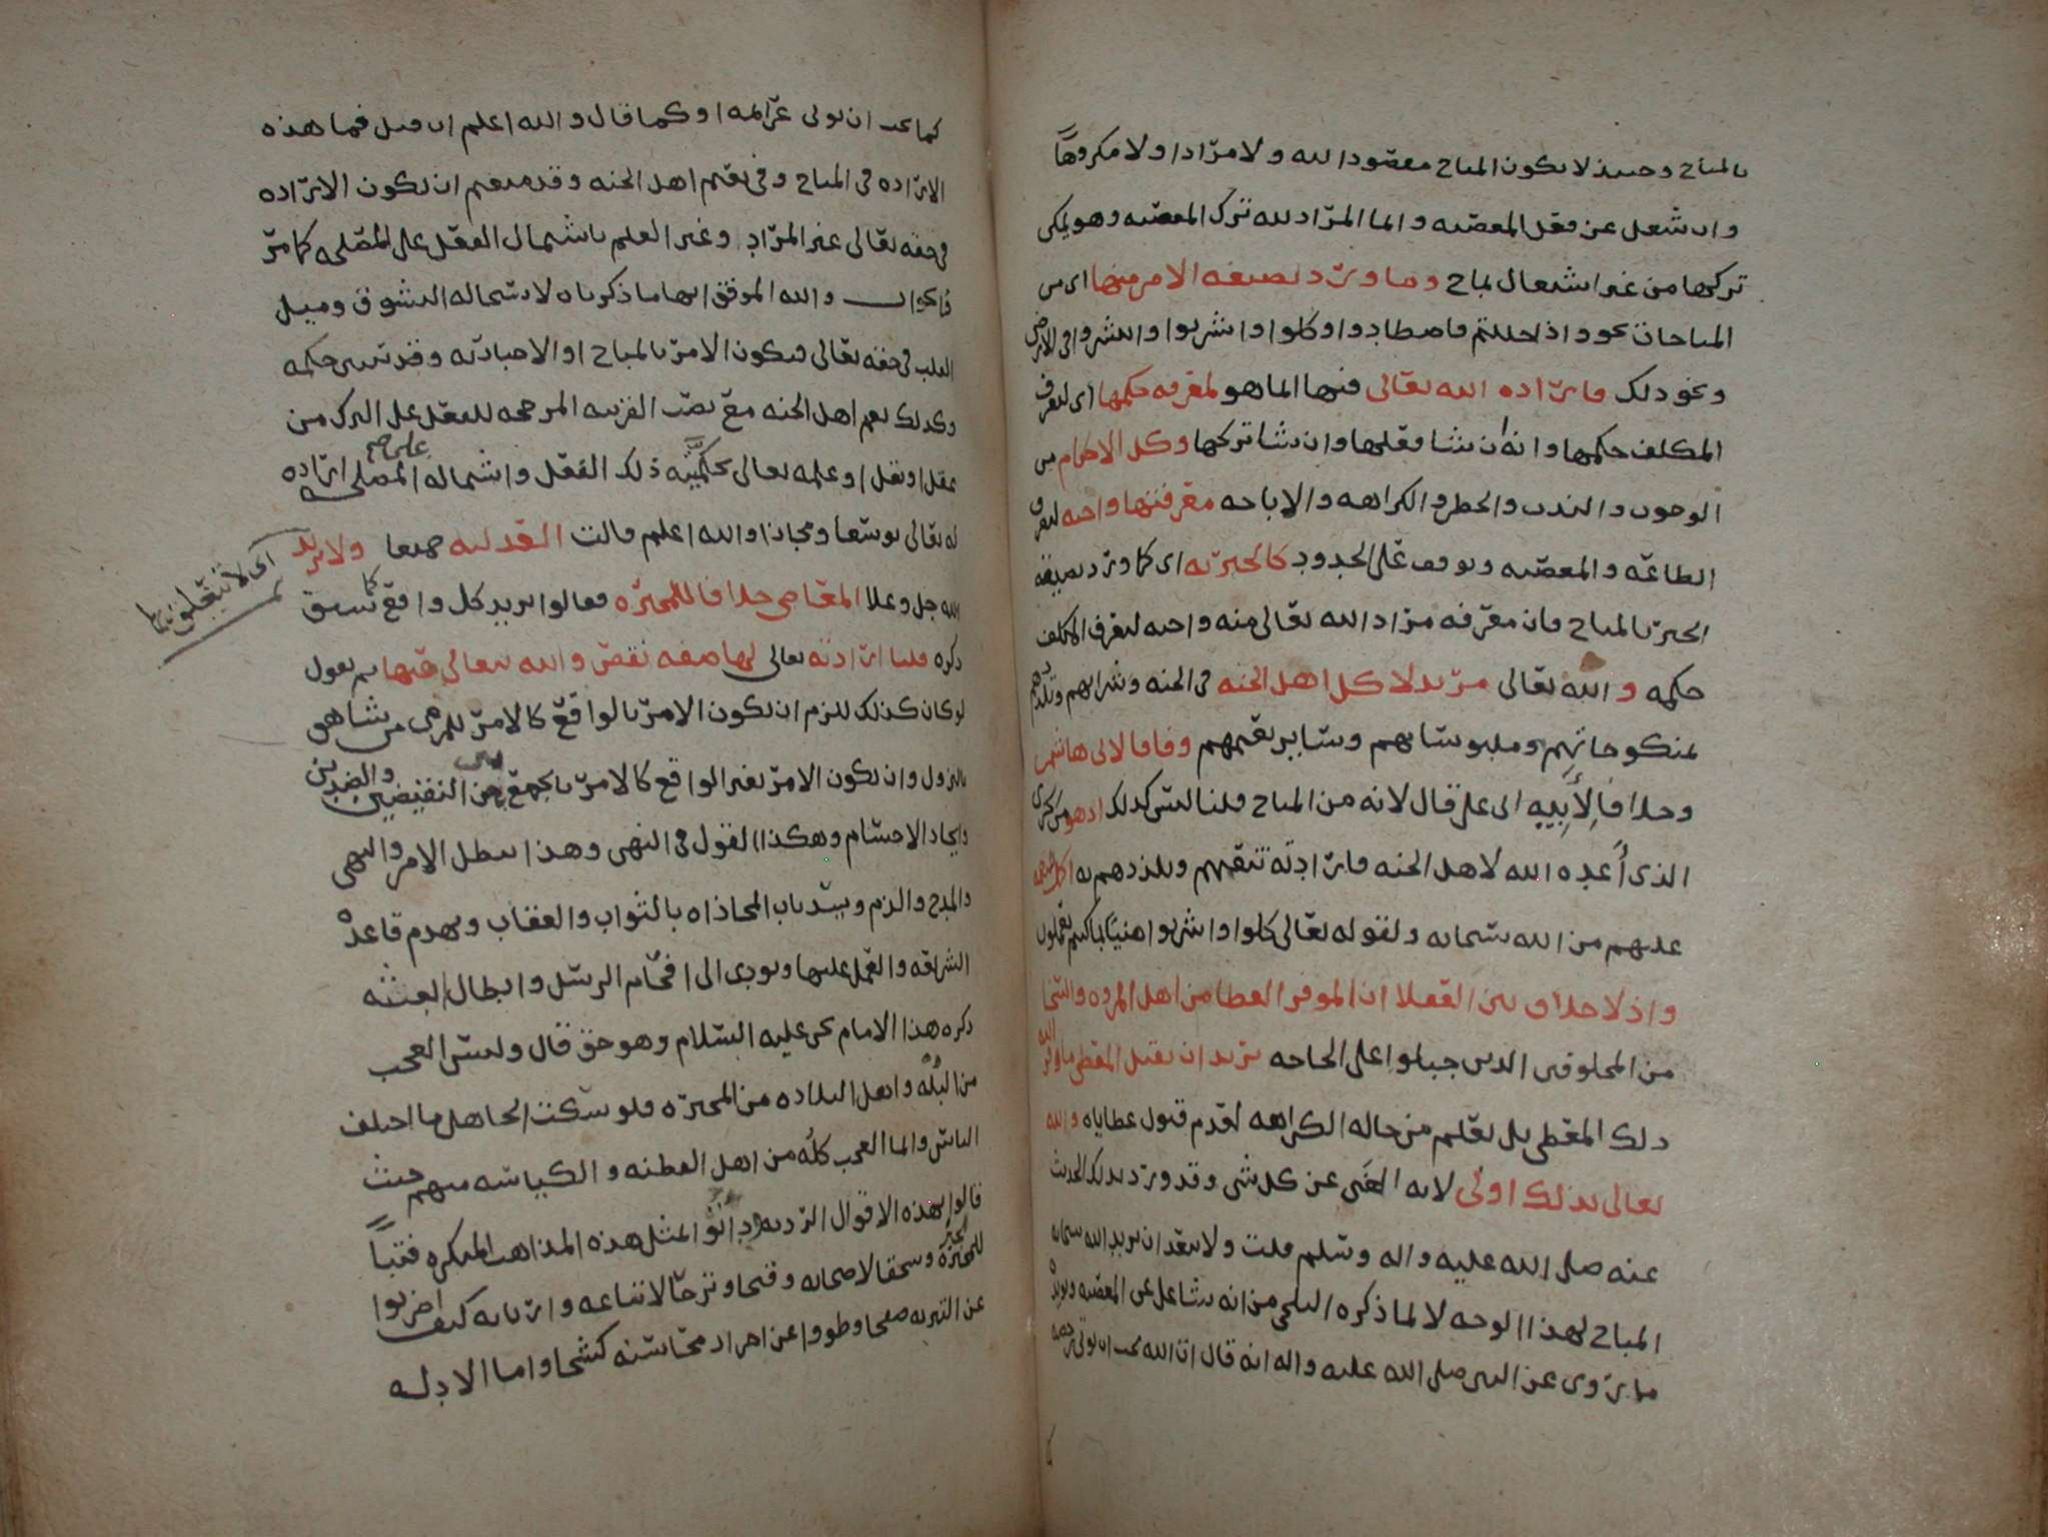 بالمباح وحينئذ لا يكون المباح مقصودا لله ولا مرادا ولا مكروها
وان شغل عن فعل المعصيه وانما المراد لله ترك المعصيه وهو يمكن
تركها من غير اشتغال بمباح وما ورد بصيغه الامر منها اي من
المباحات نحو واذا حللتم فاصطادوا وكلوا واشربوا وانتشروا في الارض
ونحو ذلك فارادة الله تعالى فيها انما هو لمعرفه حكمها اي ليعرف
المكلف حكمها وانه ان شا فعلها وان شا تركها وكل الاحكام من
الوجوب والندب والحظر والكراهه والاباحه معرفتها واجبه ليعرف
الطاعه والمعصيه ويوقف على الحدود كالخبريه اي كما ورد بصيغه
الخبر بالمباح فان معرفه مراد الله تعالى منه واجبه ليعرف المكلف
حكمه والله تعالى مريد لاكل اهل الجنه في الجنه وشرابهم وتلذذهم
بمنكوحاتهم وملبوساتهم وساير نعيمهم وفاقا لابي هاشم
وخلافا لأبيه ابي علي قال لانه من المباح قلنا ليس كذلك اذ هو من الجزى
الذي أعده الله لاهل الجنه فارادته تنعمهم وتلذذهم به اكمل للنعمه
عليهم من الله سبحانه ولقوله تعالى كلوا واشربوا هنيئا بما كنتم تعملون
واذ لا خلاف بين العقلا ان الموفر العطا من اهل المروه والسخا
من المخلوقين الذين جبلوا على الحاجه يريد ان يقبل المعطى ما وفر اليه
ذلك المعطي بل يعلم من حاله الكراهه لعدم قبول عطاياه والله
تعالى بذلك اولى لانه الغني عن كل شي وقد ورد بذلك الحديث
عنه صلى الله عليه واله وسلم قلت ولا يبعد ان يريد الله سبحانه
المباح لهذا الوجه لا لما ذكره البلخي من انه يشاغل عن المعصيه ويؤيده
ما يروى عن النبي صلى الله عليه واله انه قال ان الله يحب ان توتى رخصه
كما يحب ان توتى عزايمه او كما قال والله اعلم ان قيل فما هذه
الارادة في المباح وفي نعيم اهل الجنه وقد منعتم ان تكون الارادة
في حقه تعالى غير المراد وغير العلم باشتمال الفعل على المصلحه كما مر
فالجواب والله الموفق انها ما ذكرناه لاستحاله التشوق وميل
القلب في حقه تعالى فيكون الامر بالمباح او الاخبار به وقد تبين حكمه
وكذلك نعيم اهل الجنه مع نصب القرينه المرجحه للفعل على الترك من
عقل او نقل او علمه تعالى بحكميه ذلك الفعل واشتماله على المصلحه ارادة
له تعالى توسعا ومجازا والله اعلم قالت العدليه جميعا ولا يريد
اي لا تتعلق بها
الله جل وعلا المعاصي خلافا للمجبره فقالوا يريد كل واقع كما سبق
ذكره قلنا ارادته تعالى لها صفه نقص والله يتعالى عنها ثم نقول
لو كان كذلك للزم ان يكون الامر بالواقع كالامر للمرمى من شاهق
بالنزول وان يكون الامر بغير الواقع كالامر بالجمع بين النقيضين والضدين
وايجاد الاجسام وهكذا القول في النهي وهذا يبطل الامر والنهي
والمدح والذم ويسد باب المجازاه بالثواب والعقاب ويهدم قاعدة
الشرايعه والعمل عليها ويودي الى افحام الرسل وابطال البعثه
ذكره هذا الامام يحيى عليه السلام وهو حق قال وليس العجب
من البُله واهل البلاده من المجبره فلو سكت الجاهل ما اختلف
الناس وانما العجب كلُّه من اهل الفطنه والكياسه منهم حيث
قالوا بهذه الاقوال الرديه ودانوا لمثل هذه المذاهب المنكره فتبا
للجبر وسحقا لاصحابه وقبحا وترحا لاتباعه واربابه كيف اضربوا
عن التنزيه صفحا وطووا عن احراز محاسنه كشحا واما الادله